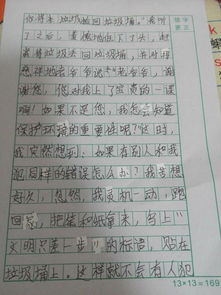 你得末垃圾放回垃圾桶。"我听
了之后，羞愧地低下了头，赶
紧将垃圾丢回垃圾桶，并对清
洁工老爷爷说："老爷爷，谢
谢您，您对我上了宝贵的一课
啊！如果不是您，我怎会知道
保护环境的重要性呢？"这时，
我突然想到：如果有别人和我
犯同样的错误怎么办？我苦想
好久，忽然，我灵机一动，跑
回家，把笔和纸拿来，写上"
文明只差一步"的标语，贴在
垃圾桶上。这样就不会有人犯
错字
更正
13×13=169